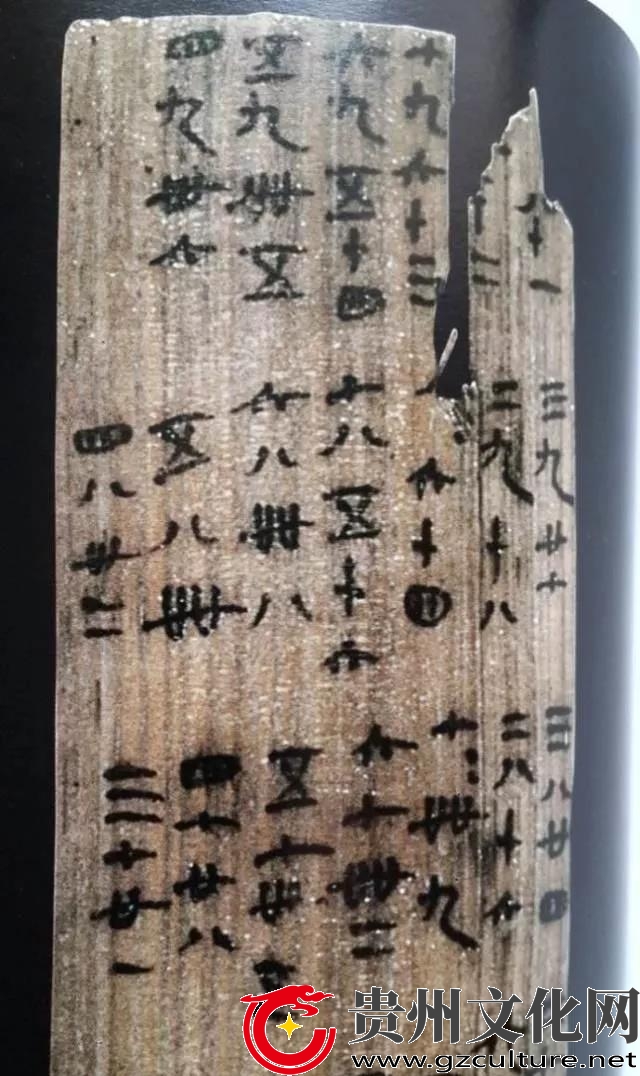 八十一
十二
七九六十三
六九五十四
五九卌五
四九卅六
三九廿七
二九十八
六十四
七八五十六
六八卌八
五八卌
四八卅二
三八廿四
二八十六
七=卌九
六七卌二
五七卅五
四七廿八
三七廿一
贵州文化网
www.gzculture.net